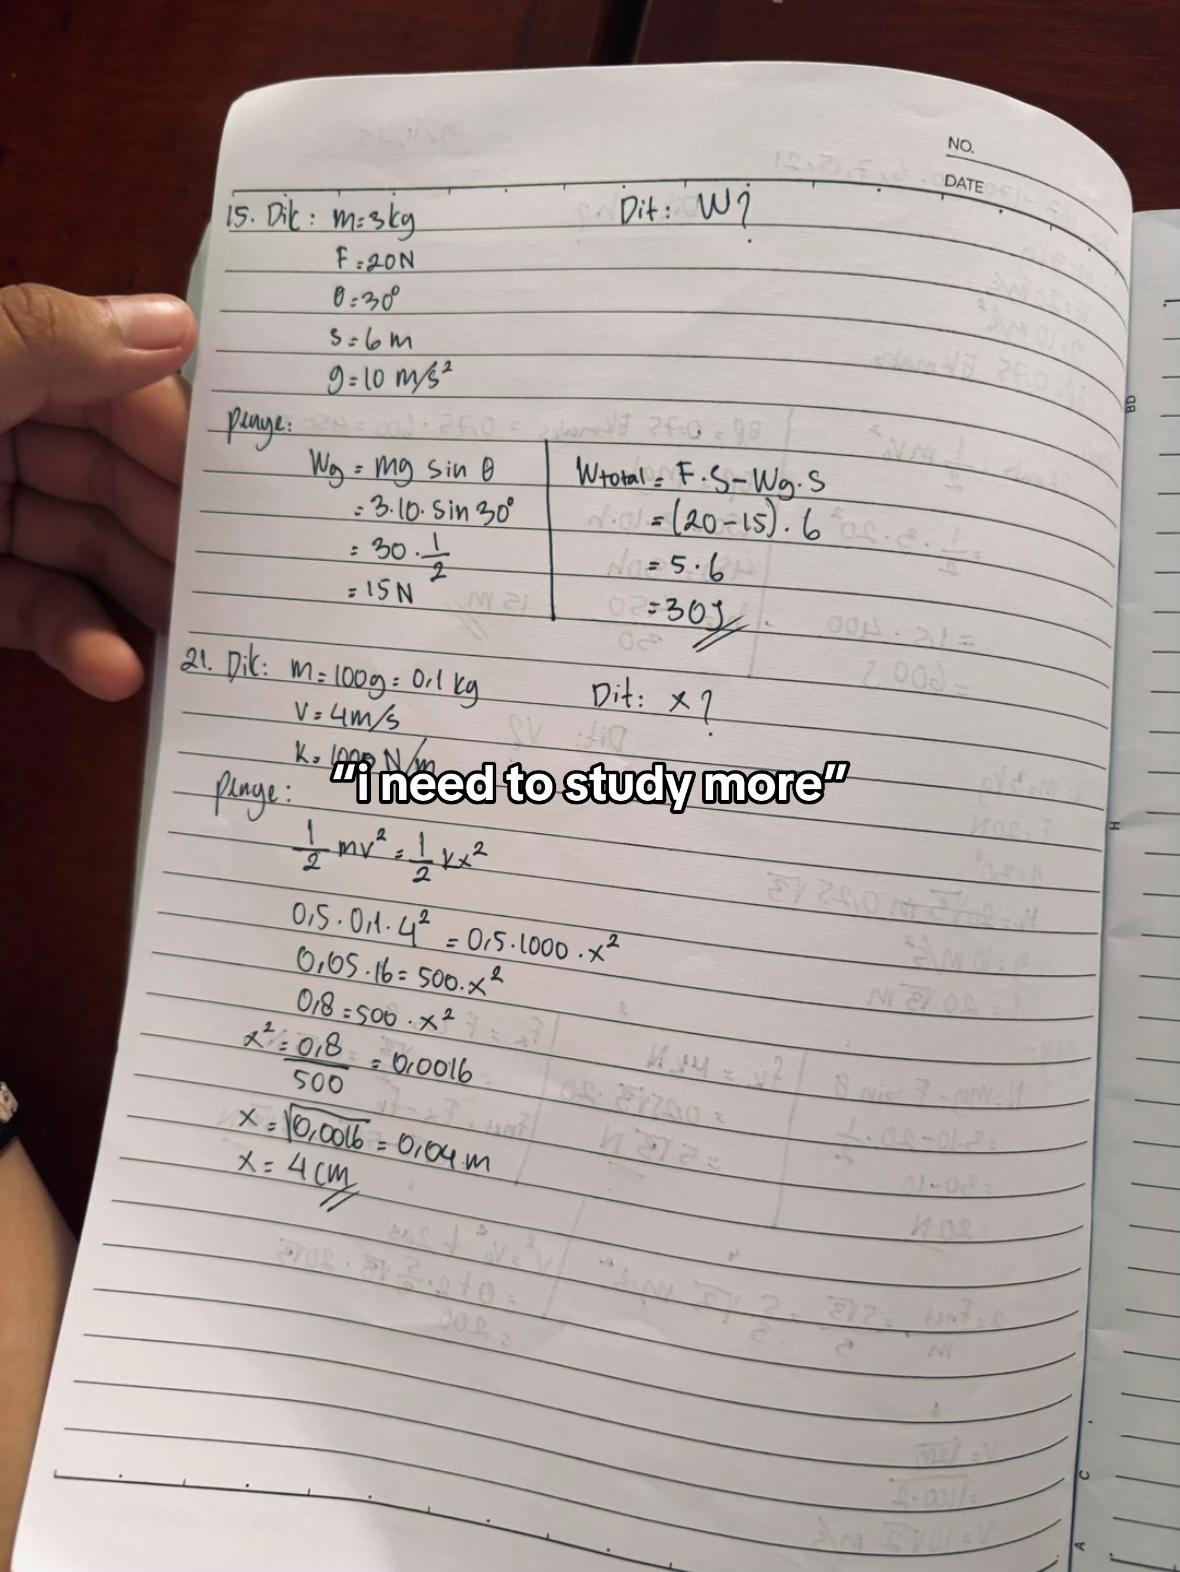 NO.
DATE
15. Dik: m=3kg Dit: W?
F=20N
θ=30°
s=6m
g=10 m/s²
penye:
Wg = mg sin θ
=3.10. sin 30°
=30 . 1/2
=15N
Wtotal = F.S-Wg.S
=(20-15). 6
=5.6
=30J
21. Dik: m=100g=0,1 kg Dit: x?
V=4m/s
k=1000 N/m
penye:
"i need to study more"
1/2 mv² = 1/2 kx²
0,5.0,1.4² = 0,5.1000.x²
0,05.16=500.x²
0,8=500.x²
x²=0,8/500 = 0,0016
x=√0,0016 = 0,04m
x=4cm
BD
H
C
A